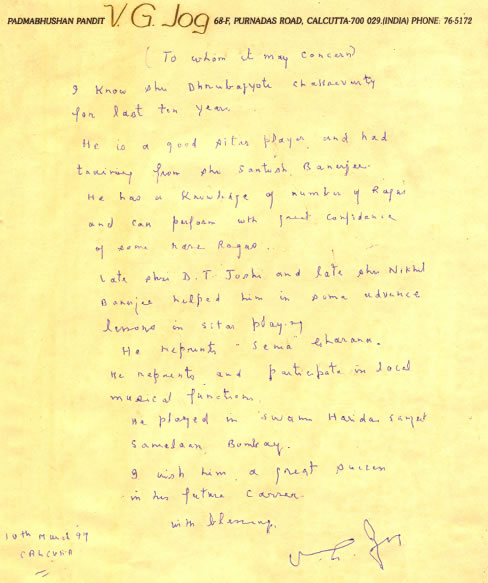 PADMABHUSHAN PANDIT V. G. Jog 68-F, PURNADAS ROAD, CALCUTTA-700 029.(INDIA) PHONE: 76-5172
(To whom it may concern)
I know shri Dhrubajyoti Chakravurty
for last ten years.
He is a good sitar player and had
training from shri Santosh Banerjee.
He has a knowledge of number of Ragas
and can perform with great confidence
of some rare Ragas.
Late shri D.T. Joshi and late shri Nikhil
Banerjee helped him in some advance
lessons in sitar playing
He represents "Senia" Gharana.
He represents and participate in local
musical functions.
He played in Swami Haridas Sangeet
Samelaan, Bombay.
I wish him a great success
in his future career.
with blessing.
10th March 97
CALCUTTA